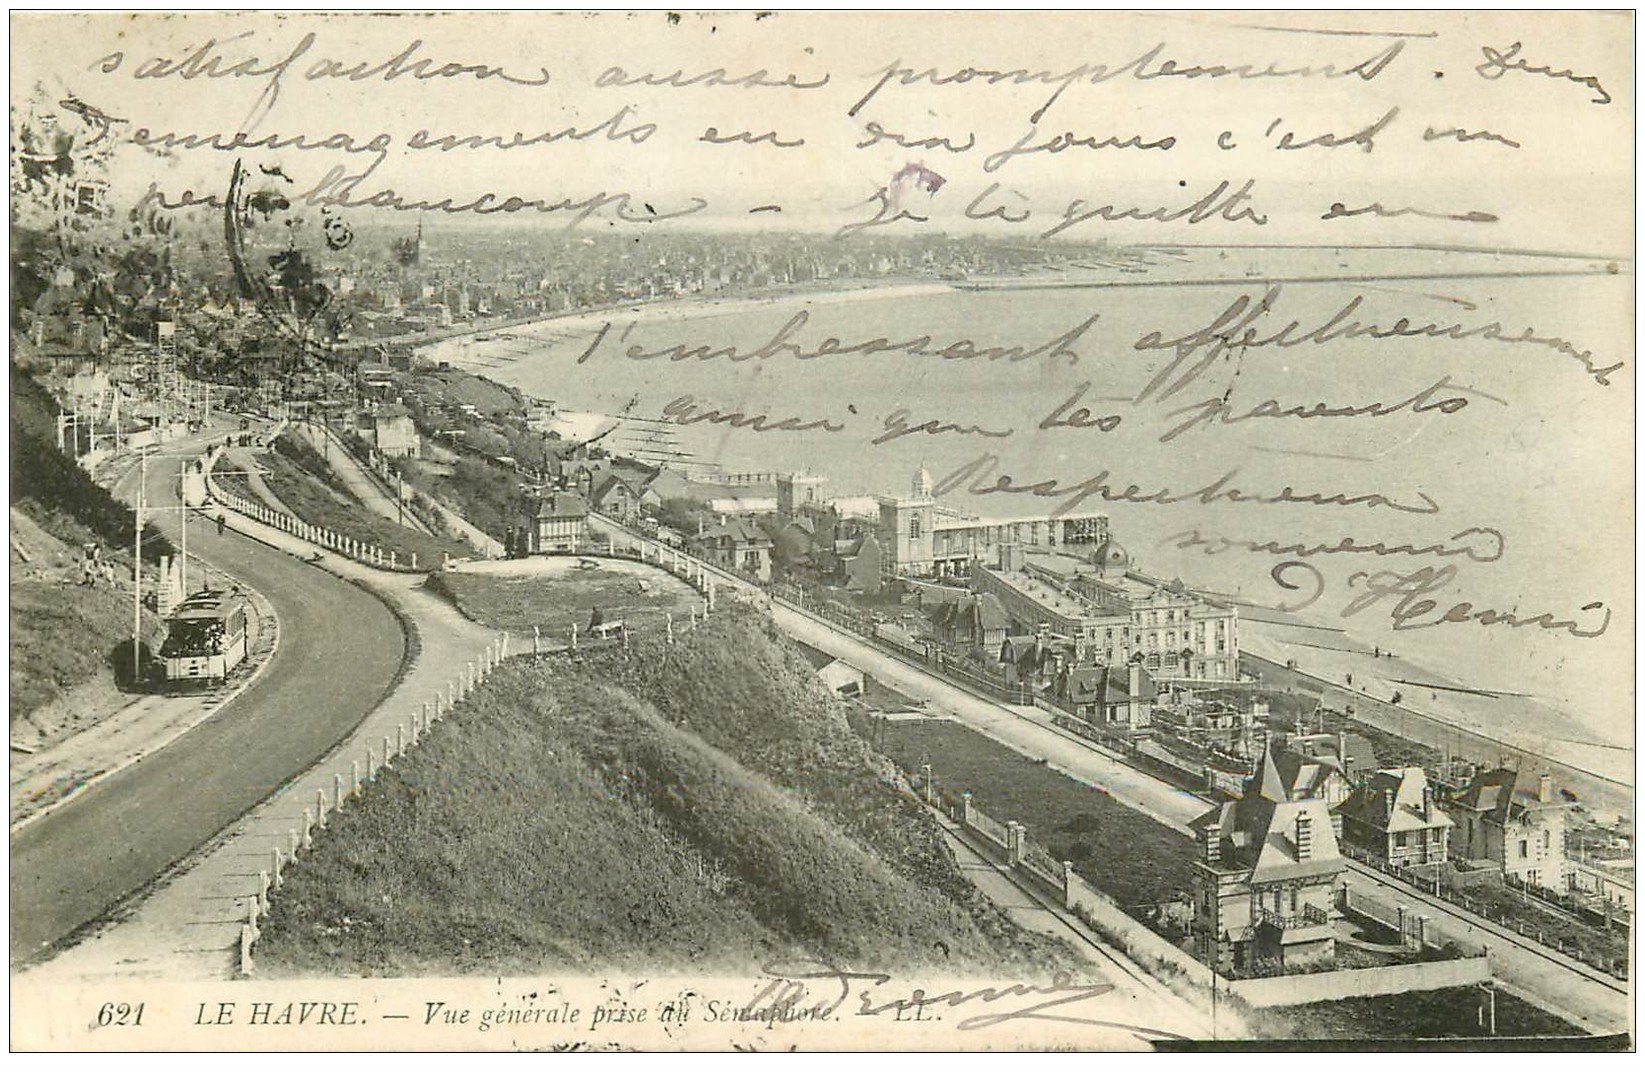 satisfaction aussi promptement. Deux
demenagements en dix jours c'est un
peu beaucoup - Je te quitte en
t'embrassant affectueusement
ainsi que tes parents
Respectueux
souvenir
d'Henri
621 LE HAVRE. — Vue générale prise du Sémaphore. — LL.